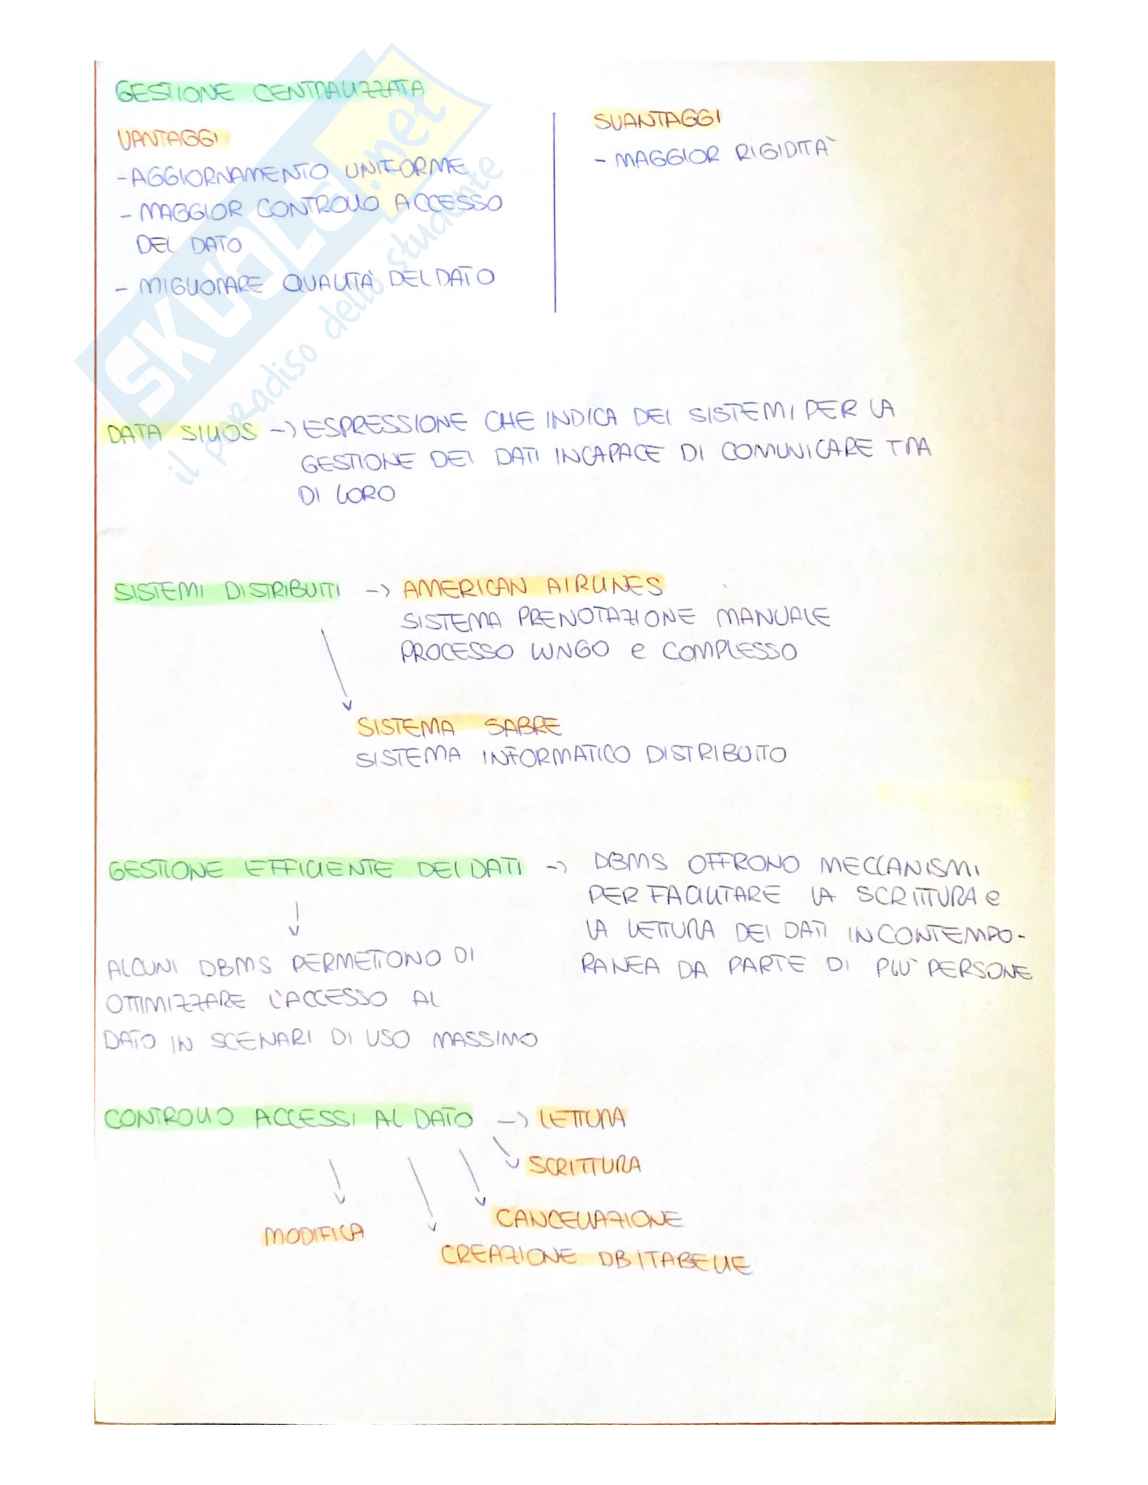 GESTIONE CENTRALIZZATA
VANTAGGI
- AGGIORNAMENTO UNIFORME
- MAGGIOR CONTROLLO ACCESSO
DEL DATO
- MIGLIORARE QUALITÀ DEL DATO
SVANTAGGI
- MAGGIOR RIGIDITÀ
DATA SILLOS -> ESPRESSIONE CHE INDICA DEI SISTEMI PER LA
GESTIONE DEI DATI INCAPACE DI COMUNICARE TRA
DI LORO
SISTEMI DISTRIBUITI -> AMERICAN AIRLINES
SISTEMA PRENOTAZIONE MANUALE
PROCESSO LUNGO e COMPLESSO
SISTEMA SABRE
SISTEMA INFORMATICO DISTRIBUITO
GESTIONE EFFICIENTE DEI DATI -> DBMS OFFRONO MECCANISMI
PER FACILITARE LA SCRITTURA e
LA LETTURA DEI DATI IN CONTEMPO-
RANEA DA PARTE DI PIÙ PERSONE
ALCUNI DBMS PERMETTONO DI
OTTIMIZZARE L'ACCESSO AL
DATO IN SCENARI DI USO MASSIMO
CONTROLLO ACCESSI AL DATO -> LETTURA
SCRITTURA
CANCELLAZIONE
CREAZIONE DB | TABELLE
MODIFICA
SKUOLA.net
il paradiso dello studente